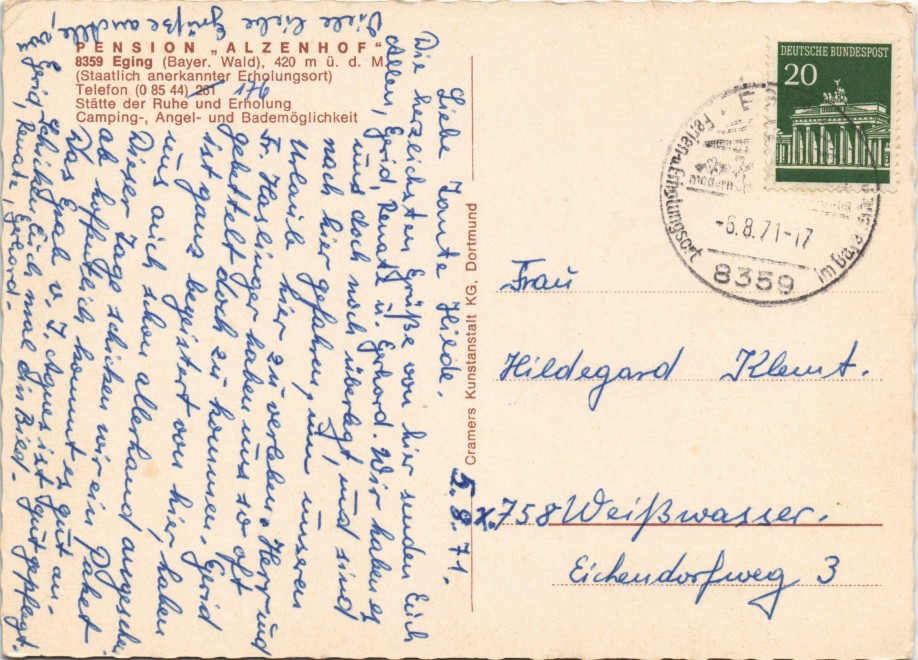 PENSION „ALZENHOF"
8359 Eging (Bayer. Wald), 420 m ü. d. M
(Staatlich anerkannter Erholungsort)
Telefon (0 85 44) 281 176
Stätte der Ruhe und Erholung
Camping-, Angel- und Bademöglichkeit
5.8.71.
Liebe Tante Hilde.
Die herzlichsten Grüße von hier senden Euch
Allen, Egrid, Renate u. Gerhard. Wir haben es
uns doch noch überlegt, und sind
nach hier gefahren, um unseren
Urlaub hier zu verleben. Herr und
Fr. Haslinger haben uns so oft
gebettelt doch zu kommen. Egrid
ist ganz begeistert von hier, haben
uns auch schon allerhand angesehen.
Dieser Tage schicken wir ein Paket
ab hoffentlich kommt es gut an.
Das Grab v. T. Agnes ist gut gepflegt.
Schicken Euch mal ein Bild.
Viele liebe Grüße an alle,
Egrid,
Renate, Gerhard.
Cramers Kunstanstalt KG, Dortmund
DEUTSCHE BUNDESPOST
20
Ferien-u.Erholungsort
modern
-6.8.71-17
8359
im Bayer.
Frau
Hildegard Klemt.
x758 Weißwasser.
Eichendorfweg 3